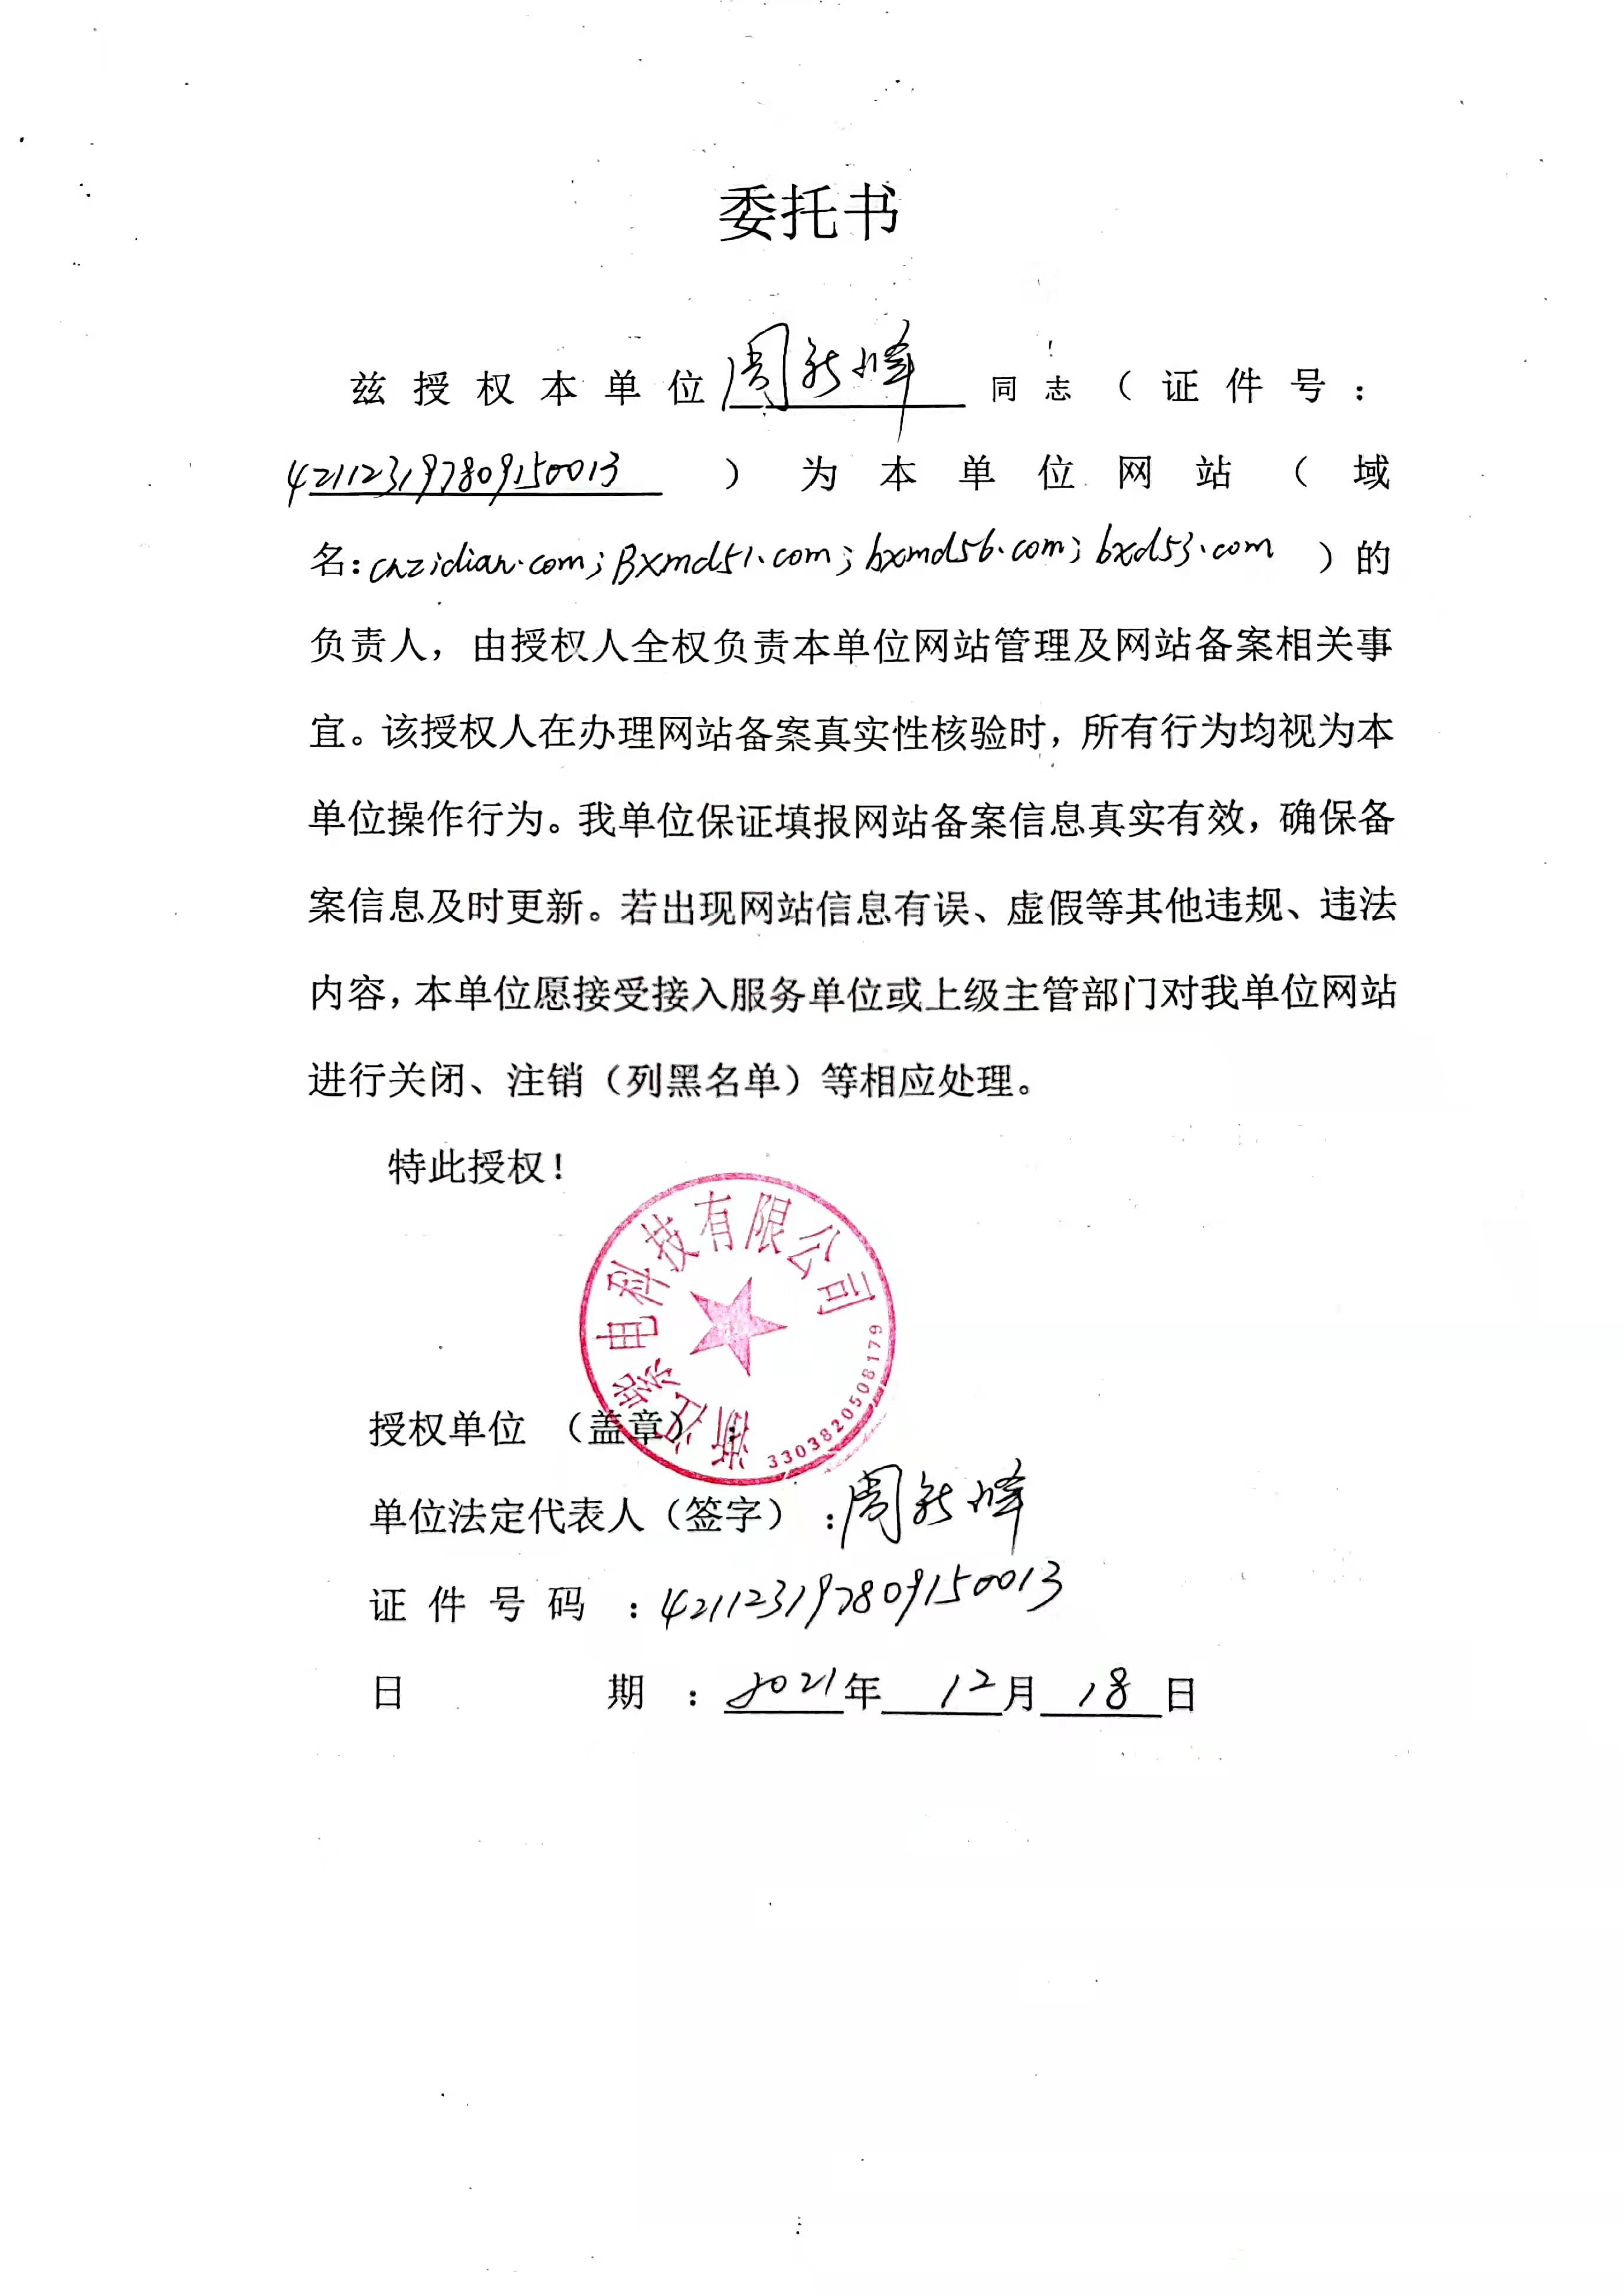 委托书
兹授权本单位周新峰同志（证件号：
421123197809150013）为本单位网站（域
名:cnzidian.com;Bxmd51.com;bxmd56.com;bxd53.com）的
负责人，由授权人全权负责本单位网站管理及网站备案相关事
宜。该授权人在办理网站备案真实性核验时，所有行为均视为本
单位操作行为。我单位保证填报网站备案信息真实有效，确保备
案信息及时更新。若出现网站信息有误、虚假等其他违规、违法
内容，本单位愿接受接入服务单位或上级主管部门对我单位网站
进行关闭、注销（列黑名单）等相应处理。
特此授权！
电科技有限公司
3303820508179
授权单位（盖章）:
单位法定代表人（签字）:周新峰
证件号码:421123197809150013
日期:2021年12月18日